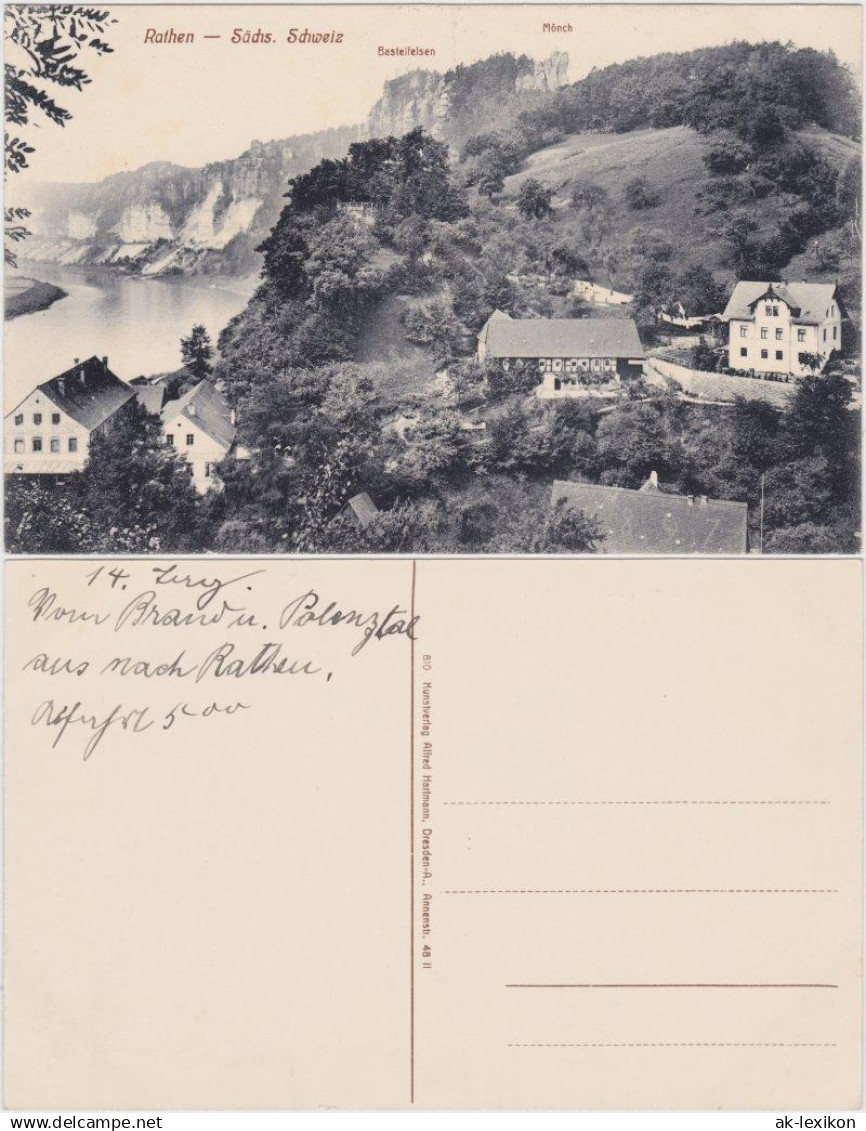 Rathen — Sächs. Schweiz
Mönch
Basteifelsen
14.
Vom Brand u. Polenztal
aus nach Rathen,
Abfahrt 5 00
810 Kunstverlag Alfred Hartmann, Dresden-A., Annenstr. 48 II
Delcampe.net
ak-lexikon